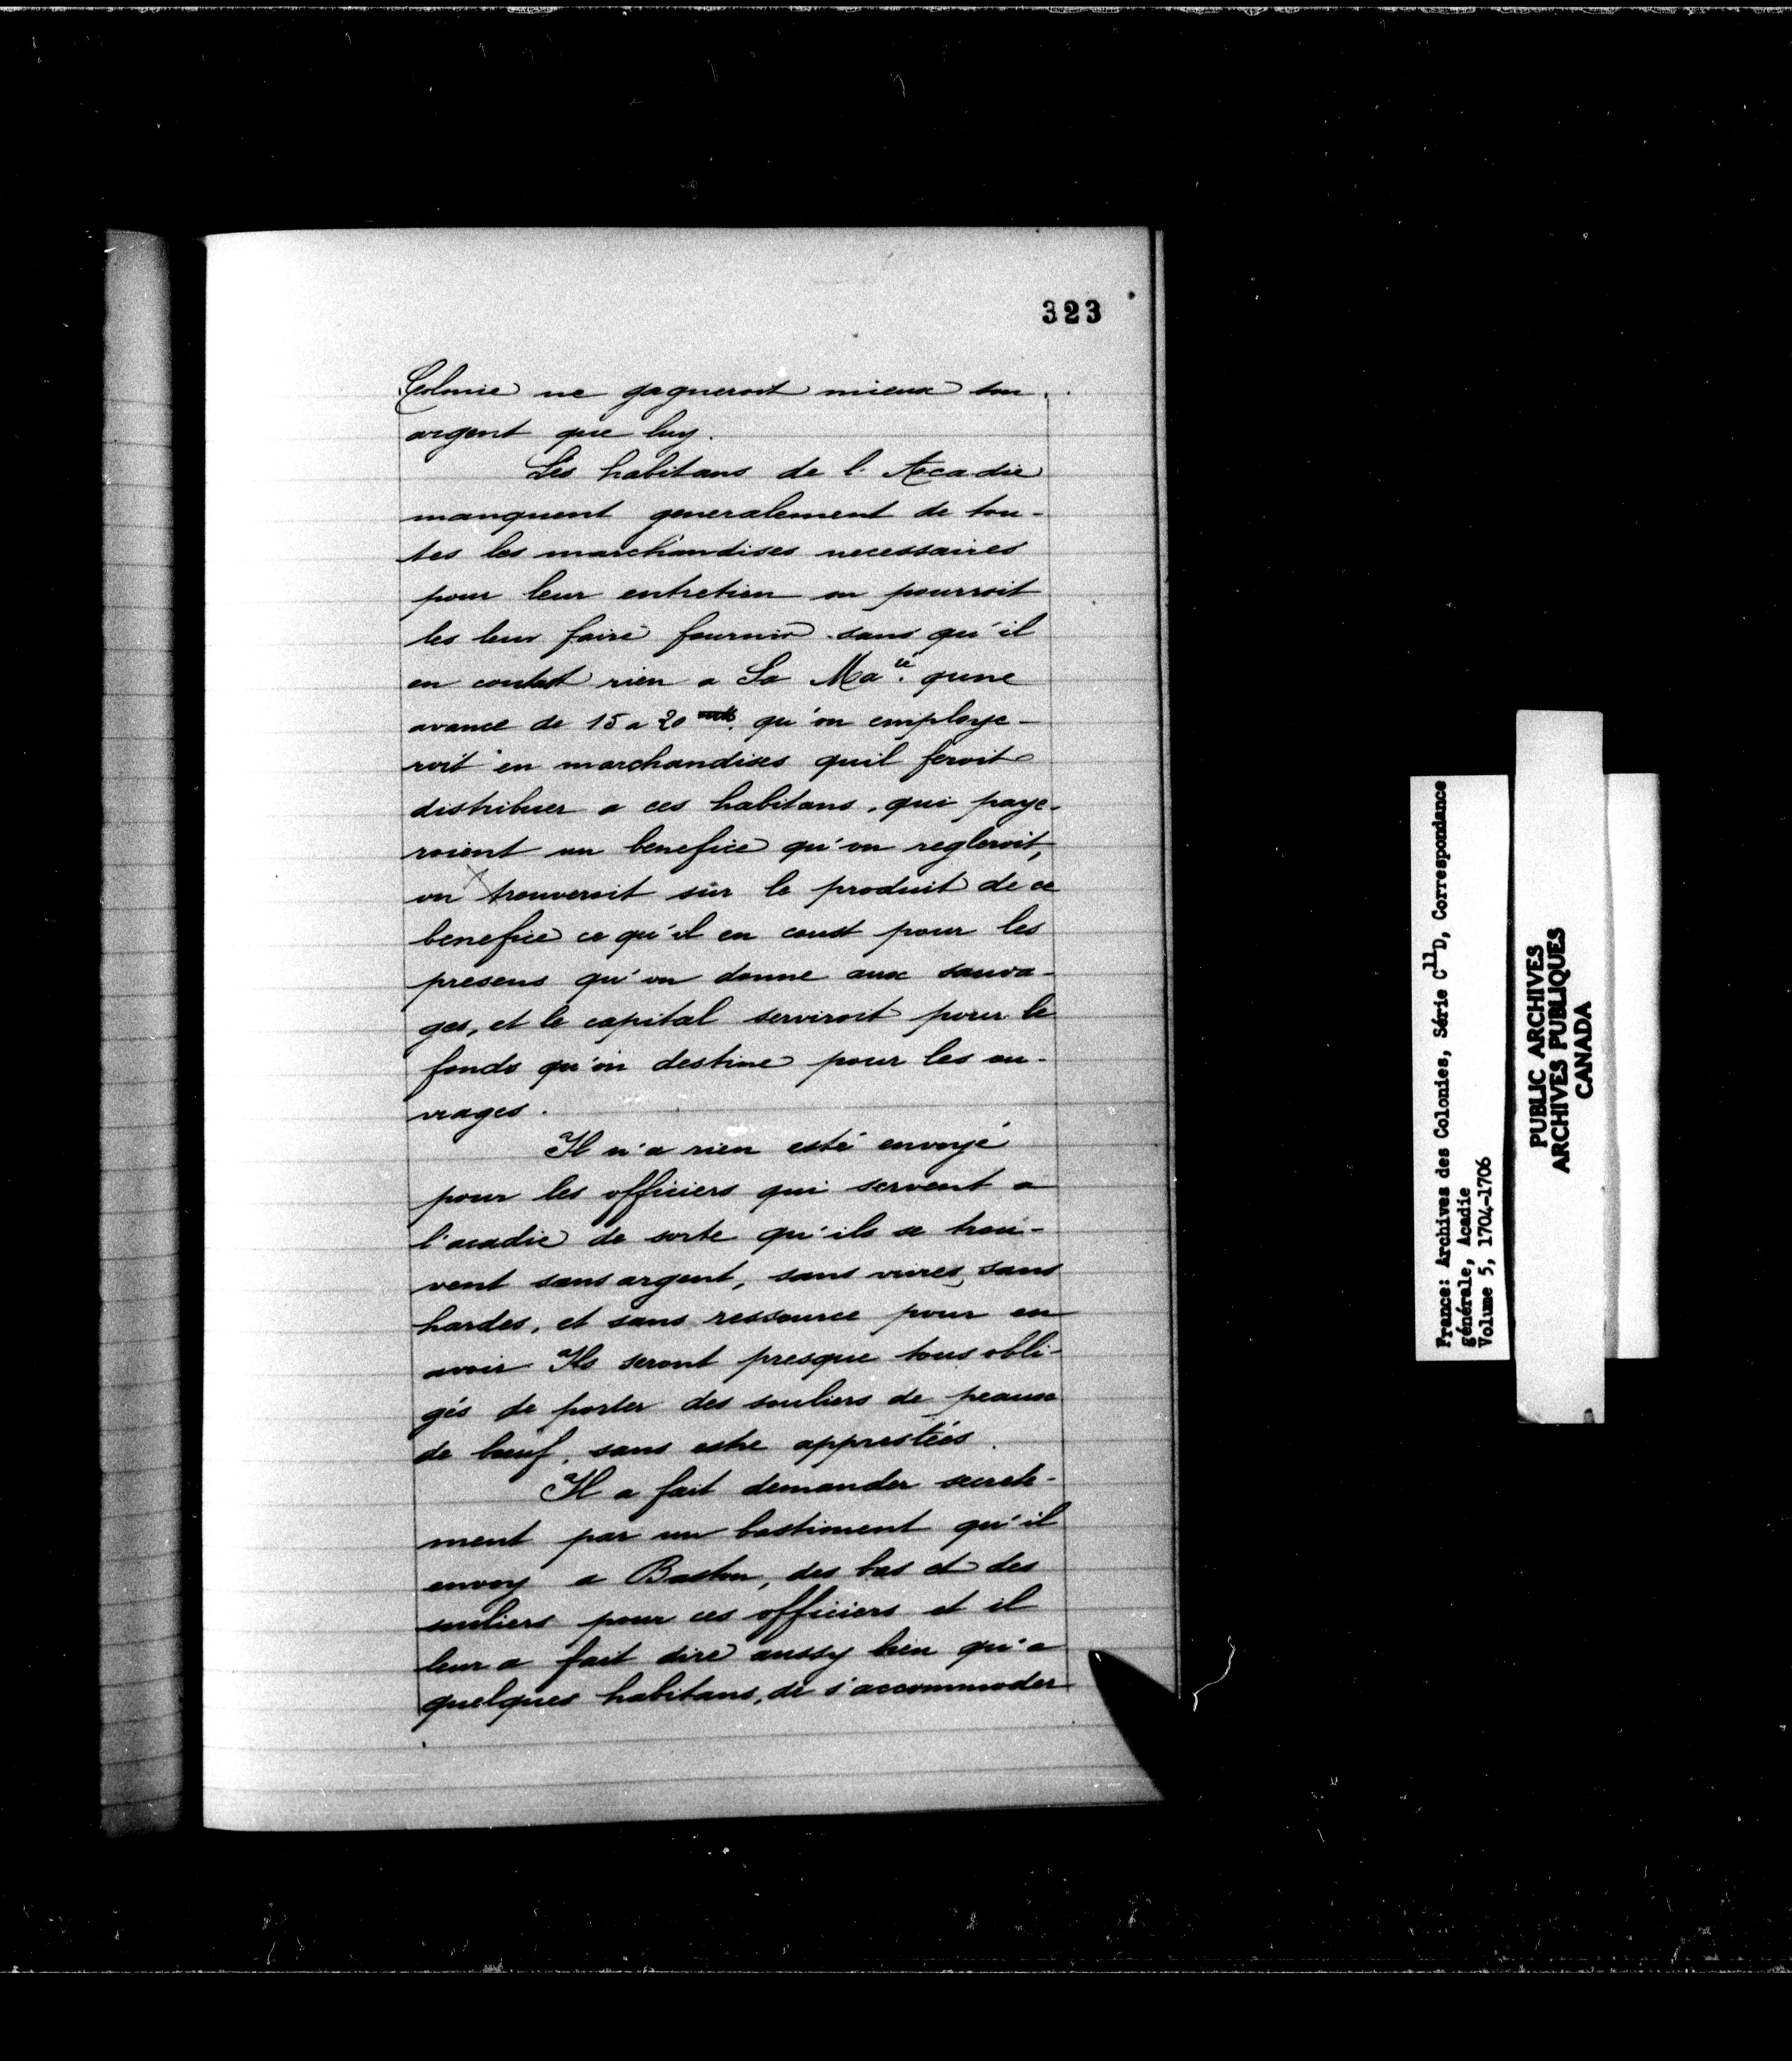 323
Colonie ne gagneroit mieux son
argent que luy.
Les habitans de l'Accadie
manquent generalement de tou-
tes les marchandises necessaires
pour leur entretien on pourroit
les leur faire fournir sans qu'il
en coutast rien a Sa Ma.té qune
avance de 15 a 20 qu'on employe-
roit en marchandises quil feroit
distribuer a ces habitans, qui paye-
roient un benefice qu'on regleroit,
on trouveroit sur le produit de ce
benefice ce qu'il en coust pour les
presens qu'on donne aux sauva-
ges, et le capital serviroit pour le
fonds qu'on destine pour les ou-
vrages.
Il n'a rien esté envoyé
pour les officiers qui servent a
l'acadie de sorte qu'ils se trou-
vent sans argent, sans vivres, sans
hardes, et sans ressource pour en
avoir Ils seront presque tous obli-
gés de porter des souliers de peaux
de bœuf, sans estre apprestées.
Il a fait demander secrete-
ment par un bastiment qu'il
envoy a Baston, des bas et des
souliers pour ces officiers et il
leur a fait dire aussy bien qu'a
quelques habitans, de s'accommoder
France: Archives des Colonies, Série C11D, Correspondance
générale, Acadie
Volume 5, 1704-1706
PUBLIC ARCHIVES
ARCHIVES PUBLIQUES
CANADA